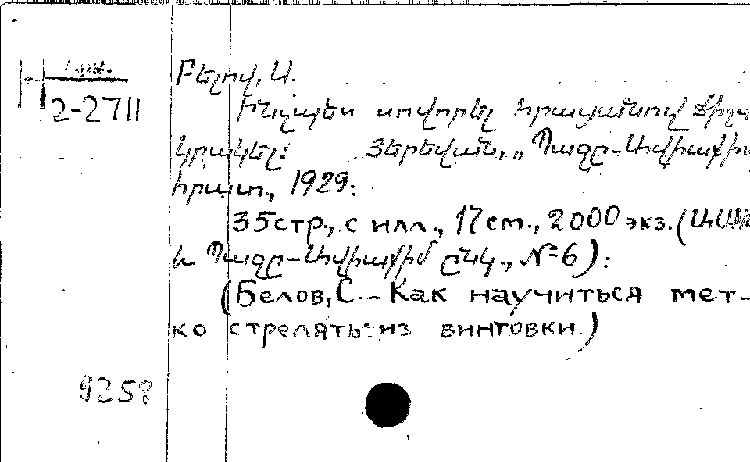 2-2711
Բելով, Ս.
Ինչպես սովորել հրացանով ճիշտ
կրակել: Յերեվան, „Պազը-Ավիաքիմ
հրատ., 1929:
35стр., с илл., 17см., 2000 экз. (
և Պազը-Ավիաքիմ ընկ., №6):
(Белов, С. – Как научиться мет-
ко стрелять из винтовки.)
9258